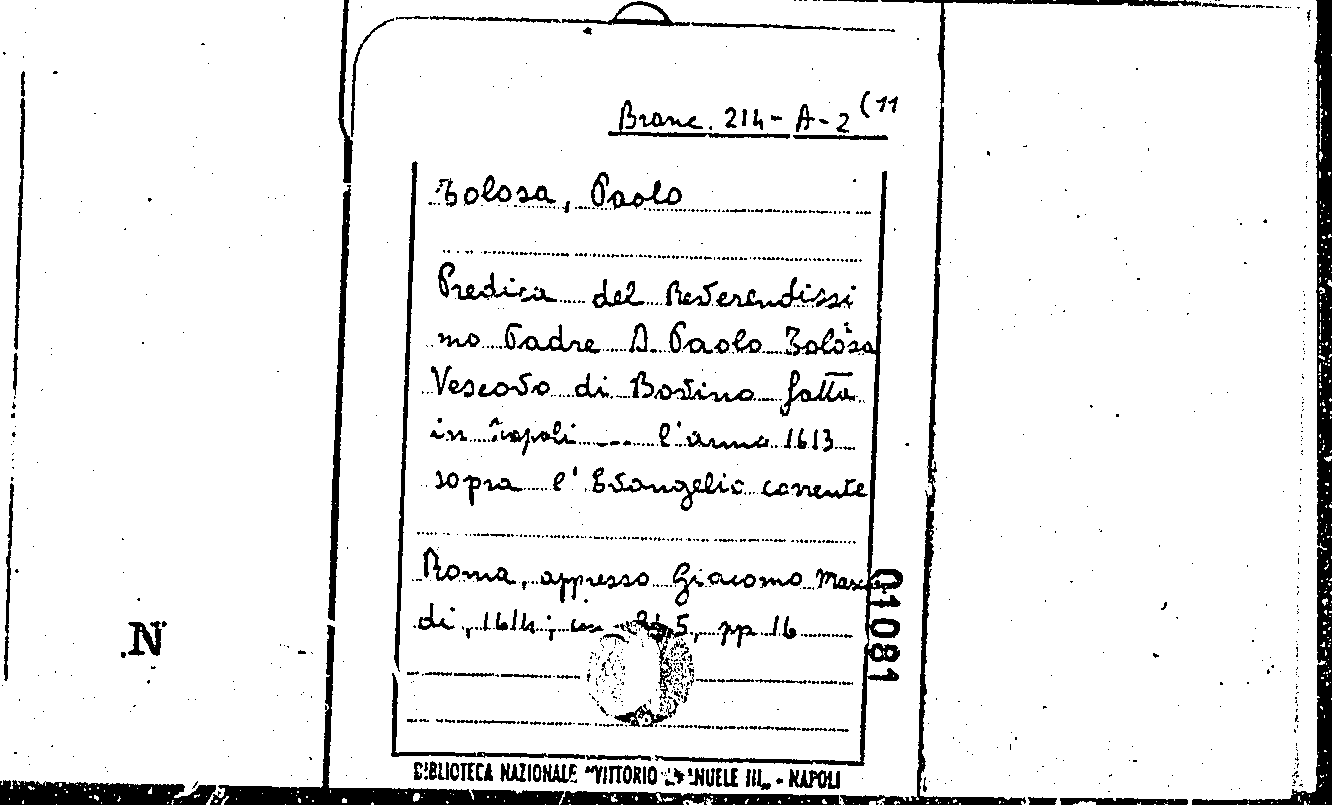 Branc. 214 - A - 2 (11
Tolosa, Paolo
Predica del Reverendissi
mo Padre D. Paolo Tolosa
Vescovo di Bovino fatta
in Napoli --- l'anno 1613
sopra l'Evangelio corrente
Roma, appresso Giacomo Mascar
di, 1614; in 5, pp 16
01081
N
BIBLIOTECA NAZIONALE "VITTORIO III„ - NAPOLI